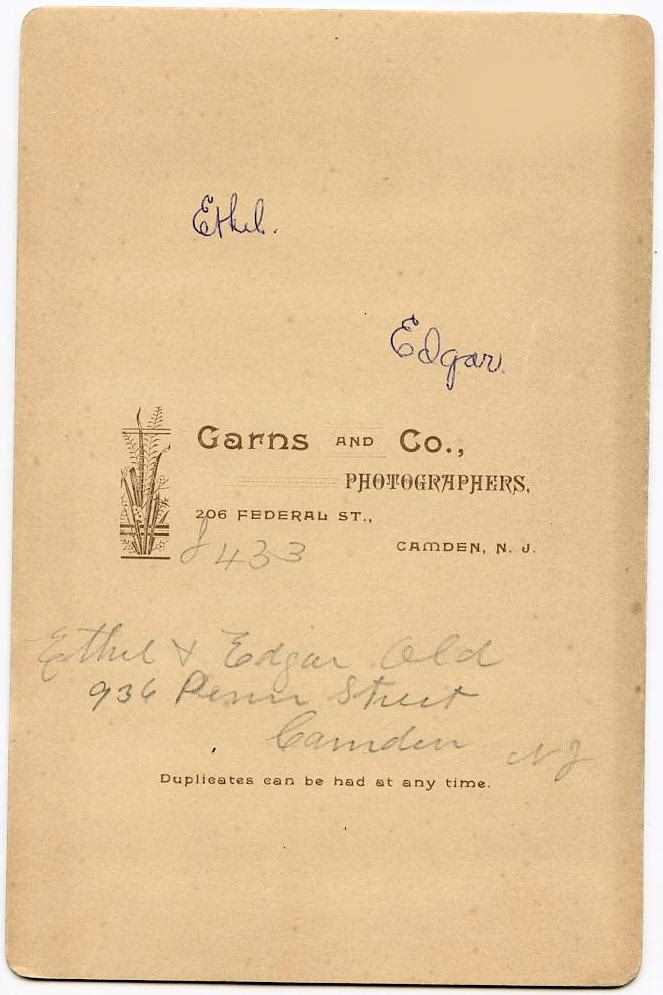 Ethel.
Edgar.
Garns AND Co.,
PHOTOGRAPHERS,
206 FEDERAL ST.,
CAMDEN, N. J.
433
Ethel & Edgar Old
936 Penn Street
Camden NJ
Duplicates can be had at any time.